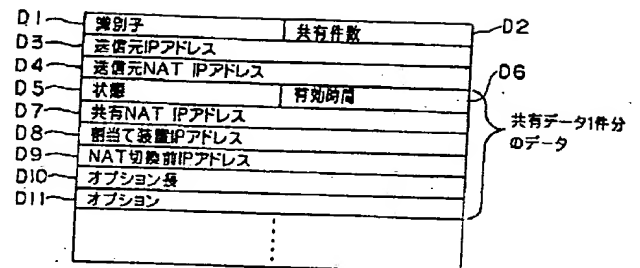 D1 識別子 共有件数 D2
D3 送信元IPアドレス
D4 送信元NAT IPアドレス
D5 状態 有効時間 D6
D7 共有NAT IPアドレス
D8 割当て装置IPアドレス
D9 NAT切換前IPアドレス
D10 オプション長
D11 オプション
共有データ1件分
のデータ